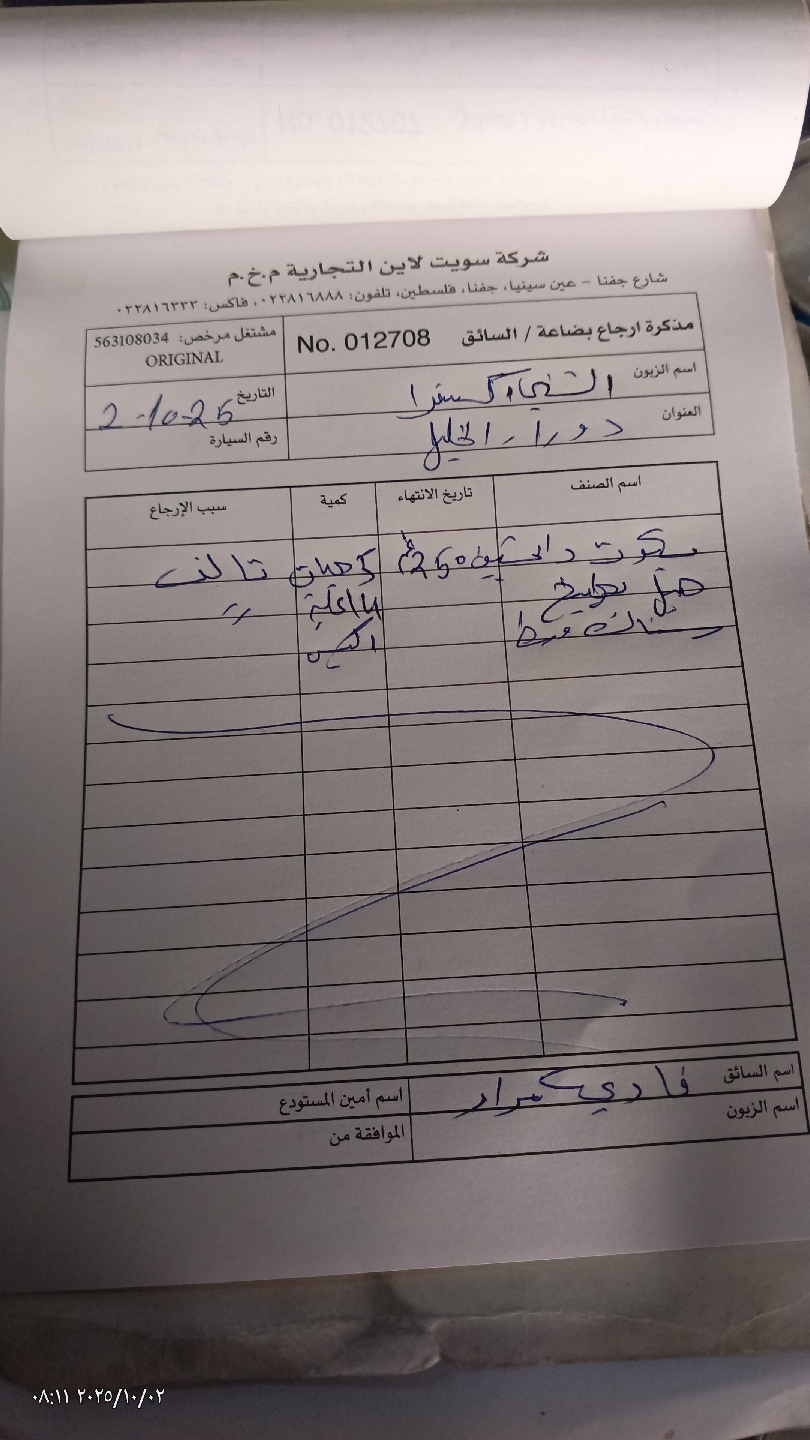 شركة سويت لاين التجارية م.خ.م
شارع جفنا - عين سينيا، جفنا، فلسطين، تلفون: ٠٢٢٨١٦٨٨٨، فاكس: ٠٢٢٨١٦٣٣٣
مذكرة ارجاع بضاعة / السائق No. 012708
مشتغل مرخص: 563108034
ORIGINAL
اسم الزبون
التاريخ 2-10-25
العنوان دورا، الخليل
رقم السيارة
اسم الصنف تاريخ الانتهاء كمية سبب الإرجاع
بسكوت تالف
"
اسم السائق فادي
اسم أمين المستودع
اسم الزبون
الموافقة من
٠٨:١١ ٢٠٢٥/١٠/٠٢